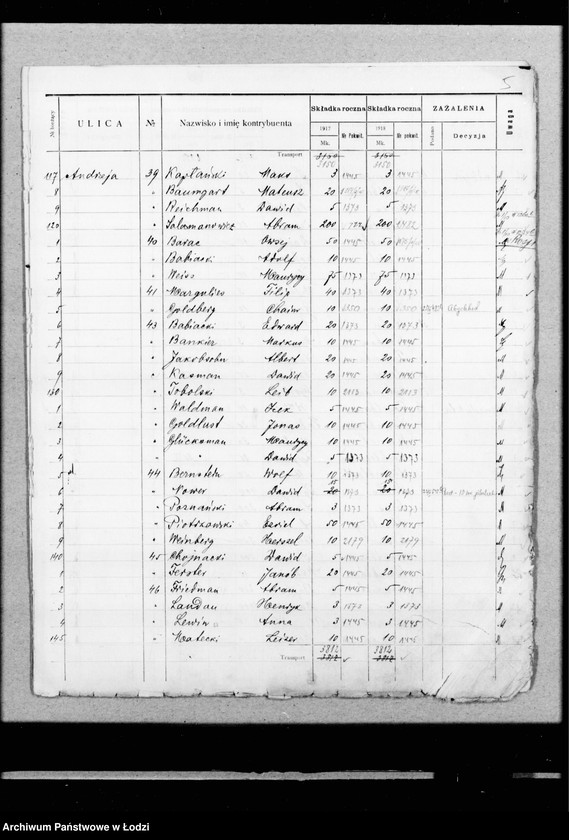 5
№ bieżący ULICA № Nazwisko i imię kontrybuenta Składka roczna Składka roczna ZAŻALENIA Uwaga
1917 Mk. № Pokwit. 1918 Mk. № Pokwit. Podano Decyzja
Transport 3150 3150
117 Andrzeja 39 Kapłański Maks 3 1445 3 1445
8 " Baumgart Mateusz 20 20
9 " Reichman Dawid 5 1373 5 1373
120 " Salamonowicz Abram 200 200
1 " 40 Barac 50 1445 50
2 " Babiacki Adolf 10 1445 10 1445
3 " Weiss Maurycy 75 1373 75 1373
4 41 Margulies Filip 40 1373 40 1373
5 " Goldberg Chaim 10 10
6 43 Babiacki Edward 20 1373 20 1373
7 " Bankier Markus 10 1445 10 1445
8 " Jakobsohn Albert 20 1445 20 1445
9 " Kazman Dawid 20 1445 20 1445
130 " Tobolski Leib 10 2013 10 2013
1 " Waldman Icek 5 1445 5 1445
2 " Goldlust Jonas 10 1445 10 1445
3 " Glücksman Maurycy 10 1445 10 1445
4 " " Dawid 5 1373 5 1373
5 44 Bernstein Wolf 10 1373 10 1373
6 " Nower Dawid 20 1373 20 1373
7 " Poznański Abram 3 1373 3 1373
8 " Piotrkowski 50 1445 50 1445
9 " Weinberg Herszel 10 2079 10 2079
140 " 45 Chojnacki Dawid 5 1445 5 1445
1 " Ferster Janob 20 1445 20 1445
2 " 46 Friedman Abram 5 1445 5 1445
3 " Landau Henryk 3 1373 3 1373
4 " Lewin Anna 3 1445 3 1445
145 " Matecki Lejzer 10 1445 10 1445
Transport 3812 3812
Archiwum Państwowe w Łodzi